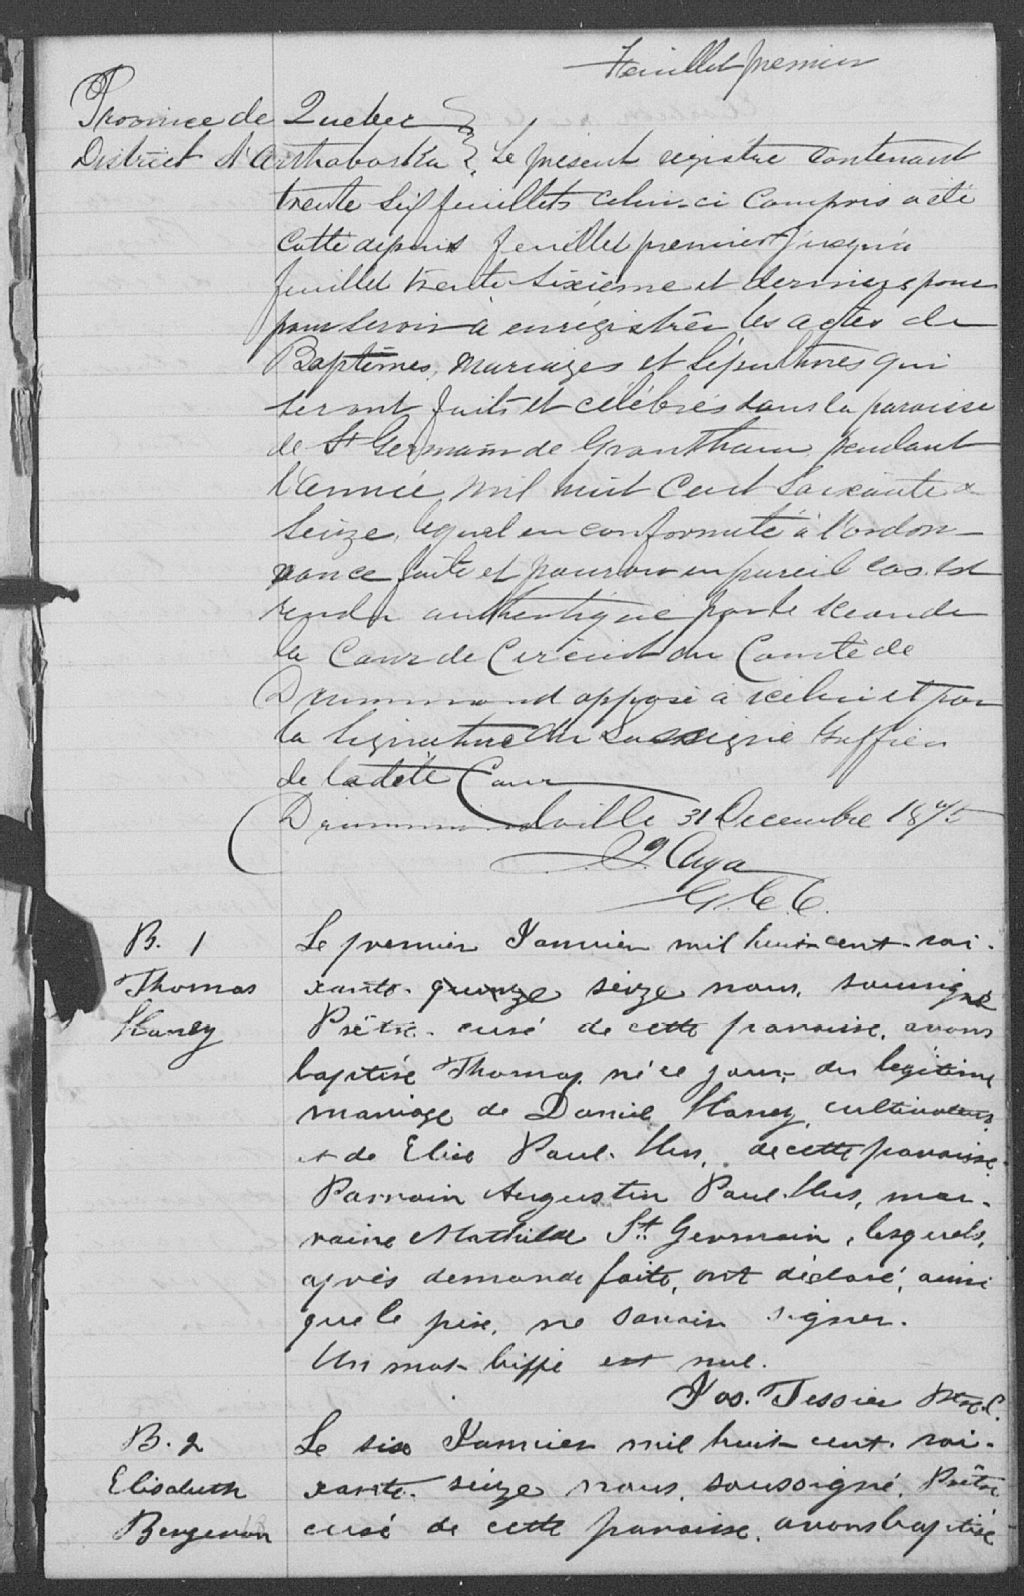 Feuillet premier
Province de Quebec
District d'Arthabaska Le présent registre contenant
trente six feuillets celui-ci compris a été
cotté depuis feuillet premier jusqu'à
feuillet trente sixième et dernier pour
pour servir à enrégistrer les actes de
Baptêmes, Mariages et Sépultures qui
seront faits et célébrés dans la paroisse
de St Germain de Grantham pendant
l'année mil huit cent soixante &
seize, lequel en conformité à l'ordon-
nance faite et pourvu en pareil cas est
rendu authentique par le sceau de
la Cour de Circuit du Comté de
Drummond apposé à icelui et par
la signature du Soussigné Greffier
de ladite Cour
Drummondville 31 Decembre 1875
Caya
G. C. C.
B. 1
Thomas
Haney
Le premier Janvier mil huit-cent-soi-
xante-quinze seize nous, soussigné
Prêtre-curé de cette paroisse, avons
baptisé Thomas, né ce jour, du légitime
mariage de Daniel Haney, cultivateur,
et de Elise Paul-Hus, de cette paroisse.
Parrain Augustin Paul-Hus, mar-
raine Mathilde St Germain, lesquels,
après demande faite, ont déclaré, ainsi
que le père, ne savoir signer.
Un mot biffé est nul.
Jos. Tessier Ptre C.
B. 2
Elisabeth
Bergeron
Le six Janvier mil huit-cent-soi-
xante-seize nous, soussigné, Prêtre
curé de cette paroisse, avons baptisé